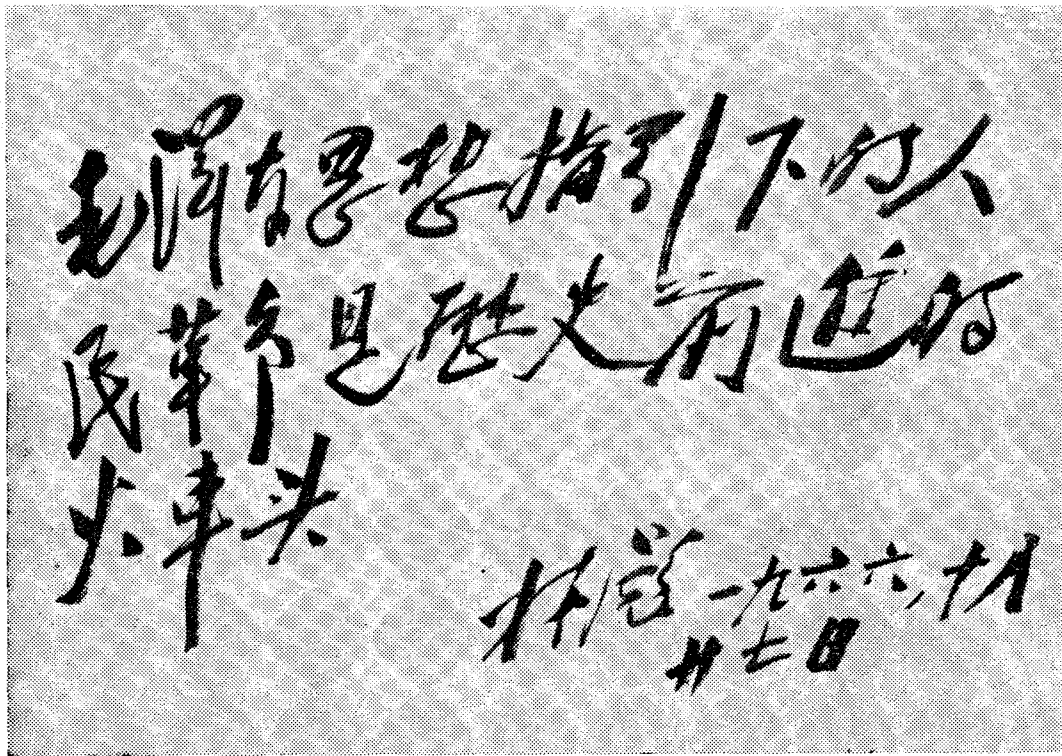 毛泽东思想指引下的人
民革命是歷史前進的
火車头
林彪 一九六六,十月
廿七日